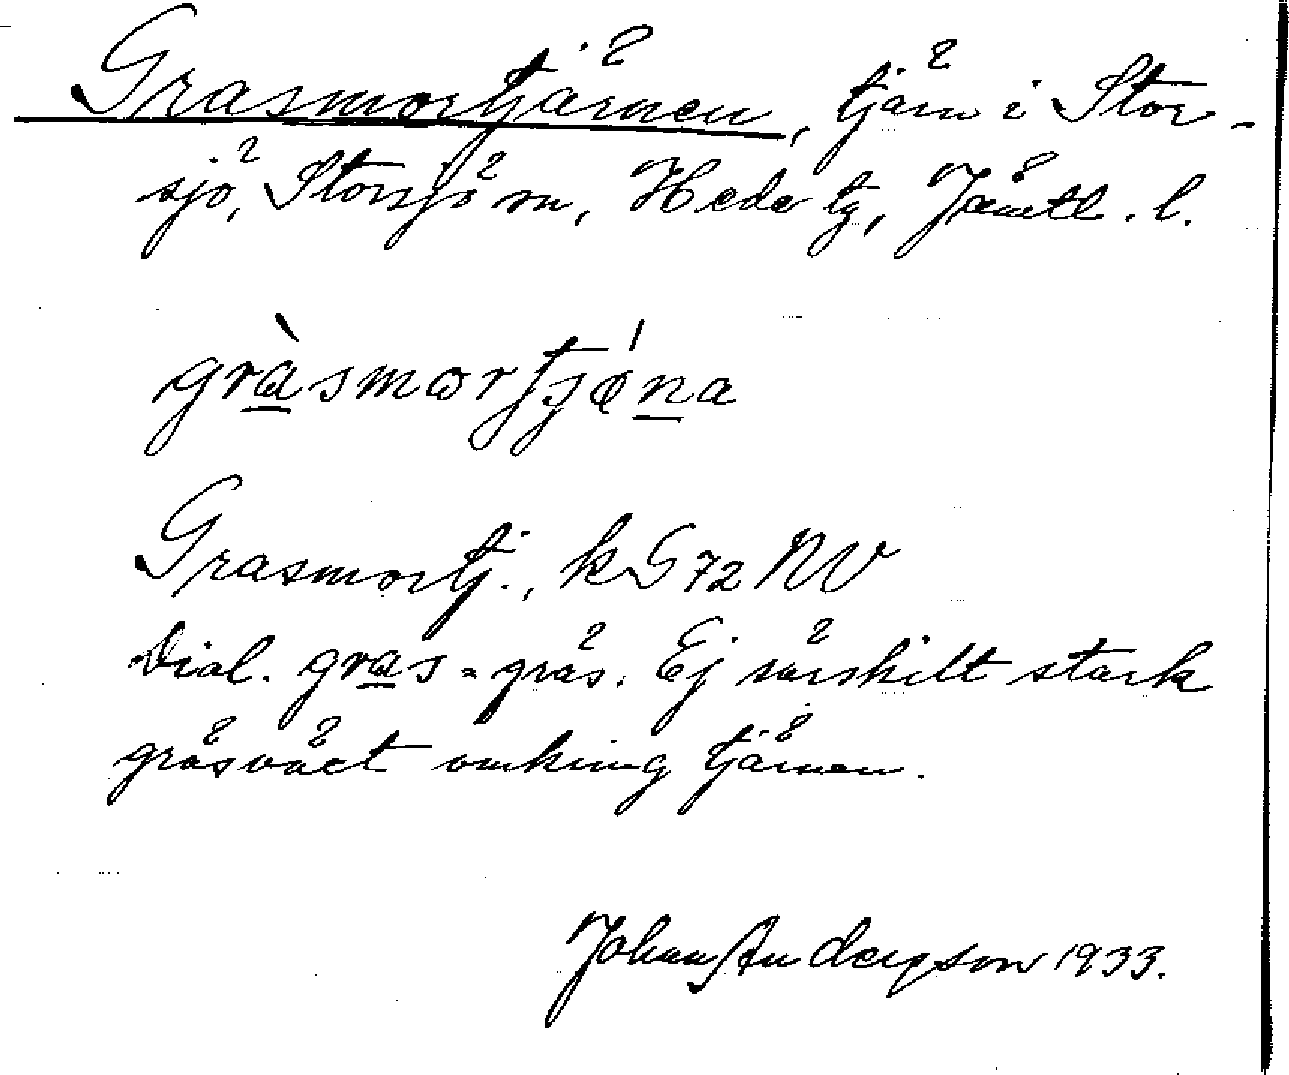 Grasmortjärnen, tjärn i Stor-
sjö, Storsjö sn, Hede tg, Jämtl. l.
gràsmortjǿna
Grasmortj., k G 72 NV
Dial. gras = gräs. Ej särskilt stark
gräsväxt omkring tjärnen.
Johan Anderpson 1933.